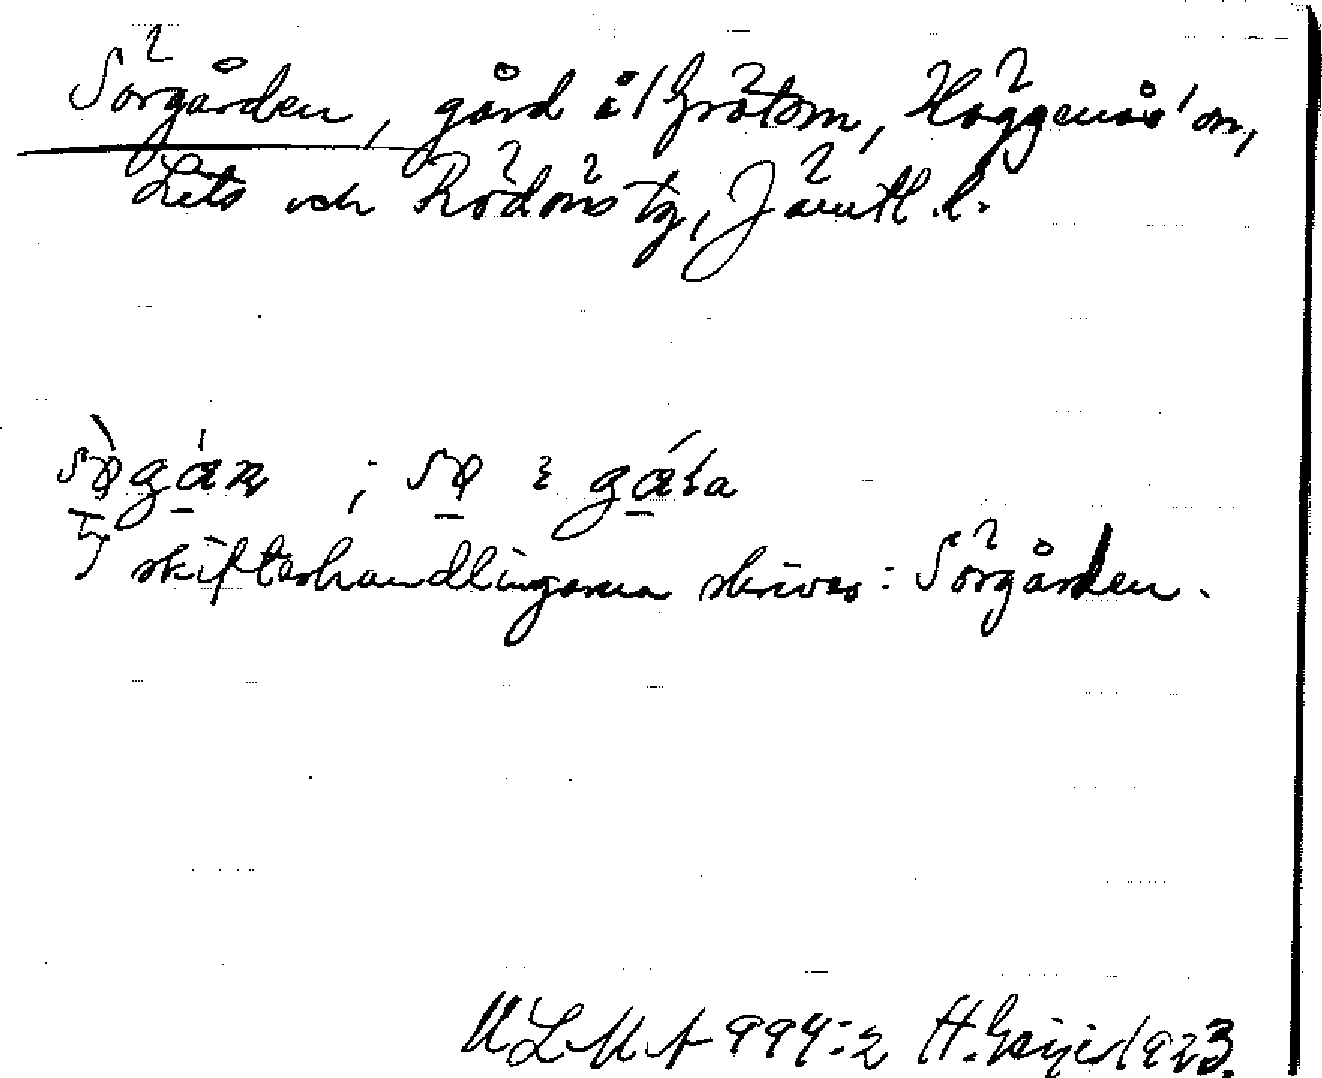 Sörgården, gård i Grötom, Häggenås' sn,
Lits och Rödöns tg, Jämtl. l.
I skifteshandlingarna skrives: Sörgården.
ULMA 994:2 H. Geijer 1923.